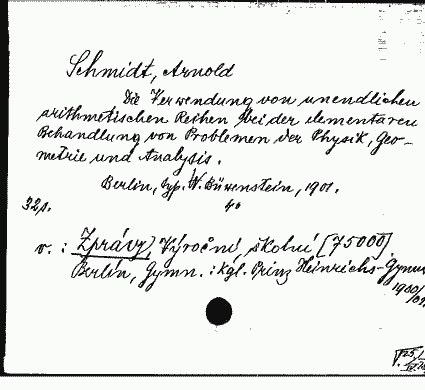 Schmidt, Arnold
Die Verwendung von unendlichen
arithmetischen Reihen bei der elementaren
Behandlung von Problemen der Physik, Geo-
metrie und Analysis.
Berlin, typ. W. Büxenstein, 1901.
32 p. 4°
v.: Zprávy, Výroční školní [75000]
Berlin, Gymn.: Kgl. Prinz Heinrichs-Gymn
1900/01